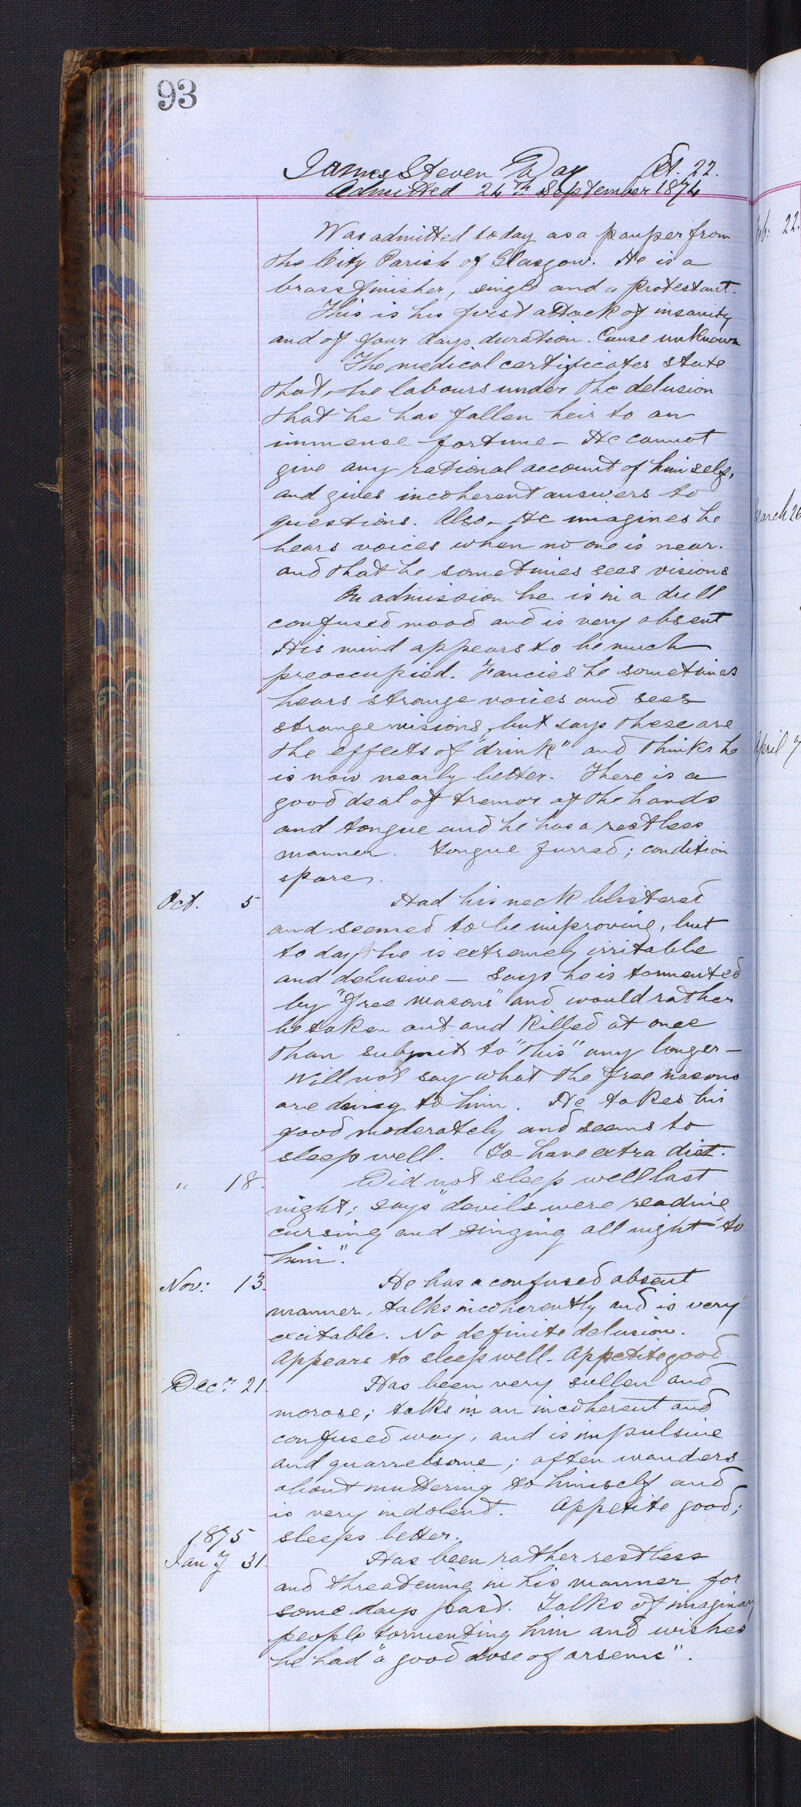 93
James Steven Aet. 22.
Admitted 24th September 1874
Was admitted to day as a pauper from
the City Parish of Glasgow. He is a
brass finisher, single and a protestant.
This is his first attack of insanity
and of four days duration. Cause unknown
The medical certificates state
that he labours under the delusion
that he has fallen heir to an
immense fortune - He cannot
give any rational account of himself,
and gives incoherent answers to
questions. Also - He imagines he
hears voices when no one is near.
and that he sometimes sees visions
On admission he is in a dull
confused mood and is very absent
His mind appears to be much
preoccupied. Fancies he sometimes
hears strange voices and sees
strange visions, but says these are
the effects of "drink" and thinks he
is now nearly better. There is a
good deal of tremor of the hands
and tongue and he has a restless
manner. Tongue furred; condition
spare.
Oct. 5 Had his neck blistered
and seemed to be improving, but
to day he is extremely irritable
and delusive - Says he is tormented
by "free masons" and would rather
be taken out and killed at once
than submit to "this" any longer -
Will not say what the free masons
are doing to him. He takes his
food moderately and seems to
sleep well. To have extra diet.
" 18. Did not sleep well last
night; says "devils were reading
cursing and singing all night to
him".
Nov: 13. He has a confused absent
manner, talks incoherently and is very
excitable. No definite delusion.
Appears to sleep well - Appetite good.
Decr 21. Has been very sullen and
morose; talks in an incoherent and
confused way, and is impulsive
and quarrelsome; often wanders
about muttering to himself and
is very indolent. Appetite good;
sleeps better.
1875
Jany 31. Has been rather restless
and threatening in his manner for
some days past. Talks of imaginary
people tormenting him and wishes
he had "a good dose of arsenic".
22.
March 26
April 7